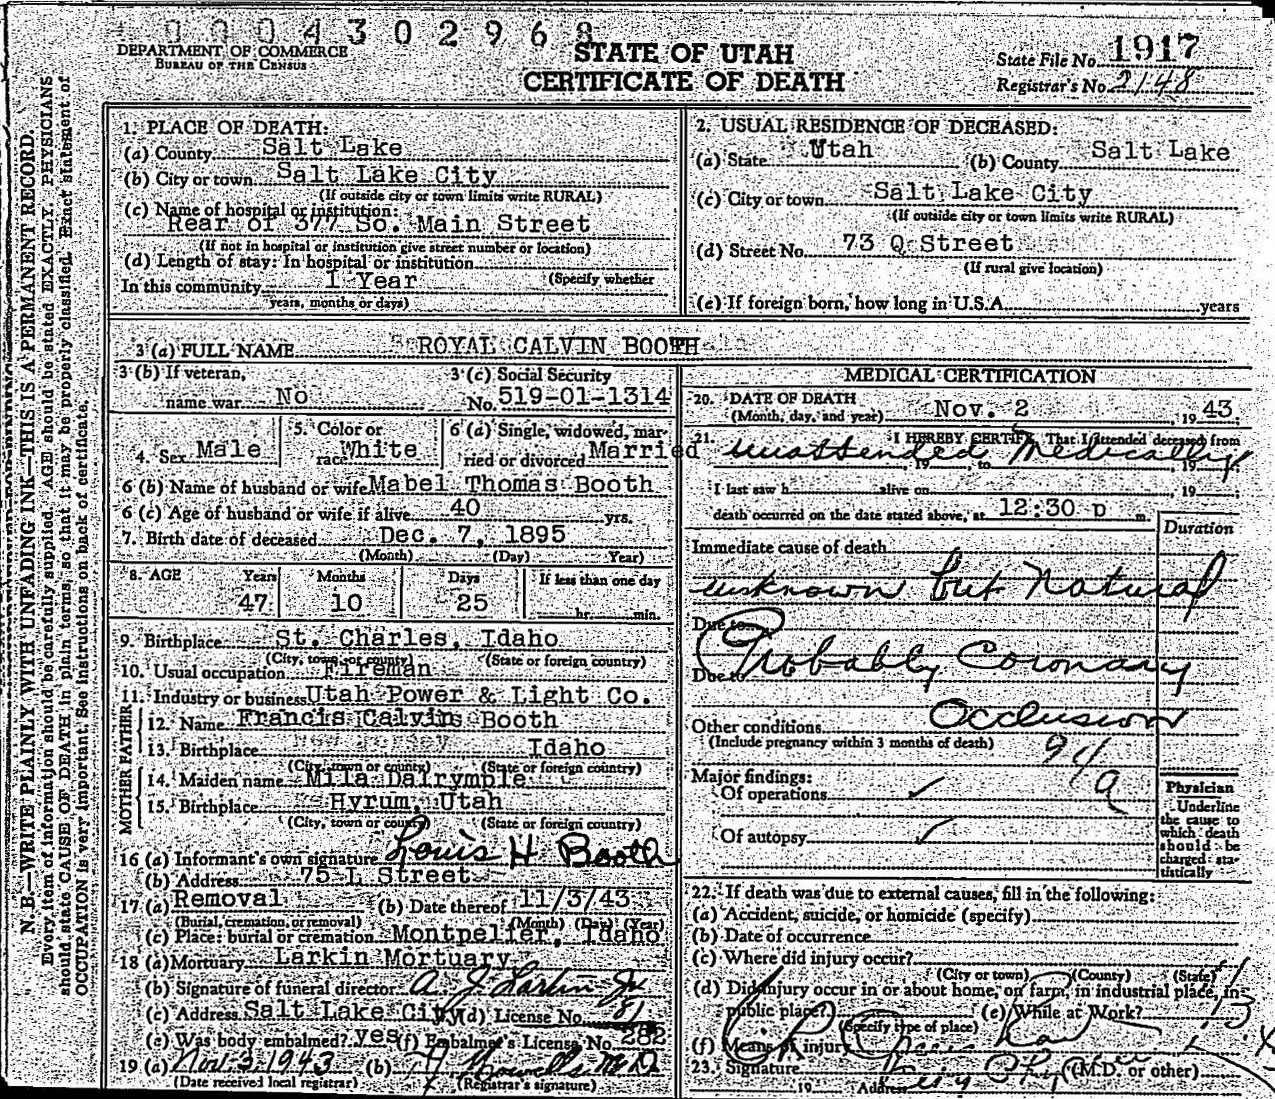 0004302968
DEPARTMENT OF COMMERCE
BUREAU OF THE CENSUS
STATE OF UTAH
CERTIFICATE OF DEATH
State File No. 1917
Registrar's No. 2148
N. B.—WRITE PLAINLY WITH UNFADING INK—THIS IS A PERMANENT RECORD.
Every item of information should be carefully supplied. AGE should be stated EXACTLY. PHYSICIANS
should state CAUSE OF DEATH in plain terms, so that it may be properly classified. Exact statement of
OCCUPATION is very important. See instructions on back of certificate.
1. PLACE OF DEATH:
(a) County Salt Lake
(b) City or town Salt Lake City
(If outside city or town limits write RURAL)
(c) Name of hospital or institution:
Rear of 377 So. Main Street
(If not in hospital or institution give street number or location)
(d) Length of stay: In hospital or institution
In this community 1 Year (Specify whether
years, months or days)
2. USUAL RESIDENCE OF DECEASED:
(a) State Utah (b) County Salt Lake
(c) City or town Salt Lake City
(If outside city or town limits write RURAL)
(d) Street No. 73 Q Street
(If rural give location)
(e) If foreign born, how long in U.S.A. years
3 (a) FULL NAME ROYAL CALVIN BOOTH
3 (b) If veteran, 3 (c) Social Security
name war No No. 519-01-1314
4. Sex Male 5. Color or race White 6 (a) Single, widowed, married or divorced Married
6 (b) Name of husband or wife Mabel Thomas Booth
6 (c) Age of husband or wife if alive 40 yrs.
7. Birth date of deceased Dec. 7, 1895
(Month) (Day) Year)
8. AGE Years Months Days If less than one day
47 10 25 hr. min.
9. Birthplace St. Charles, Idaho
(City, town or county) (State or foreign country)
10. Usual occupation Fireman
11. Industry or business Utah Power & Light Co.
FATHER
12. Name Francis Calvins Booth
13. Birthplace Idaho
(City, town or county) (State or foreign country)
MOTHER
14. Maiden name Mila Dalrymple
15. Birthplace Hyrum, Utah
(City, town or county) (State or foreign country)
16 (a) Informant's own signature Louis H Booth
(b) Address 75 L Street
17 (a) Removal (b) Date thereof 11/3/43
(Burial, cremation, or removal) (Month) (Day) (Year)
(c) Place: burial or cremation Montpelier, Idaho
18 (a) Mortuary Larkin Mortuary
(b) Signature of funeral director A. J. Larkin Jr
(c) Address Salt Lake City (d) License No. 81
(e) Was body embalmed? yes (f) Embalmer's License No. 282
19 (a) Nov. 3, 1943 (b) M.D.
(Date received local registrar) (Registrar's signature)
MEDICAL CERTIFICATION
20. DATE OF DEATH
(Month, day, and year) Nov. 2 1943.
21. I HEREBY CERTIFY, That I attended deceased from
unattended Medically
, 19 , to , 19
I last saw h alive on , 19
death occurred on the date stated above, at 12:30 p m.
Duration
Immediate cause of death
unknown but Natural
Due to
Probably Coronary
Due to
Occlusion
Other conditions
(Include pregnancy within 3 months of death)
94a
Major findings:
Of operations ✓
Of autopsy ✓
Physician
Underline
the cause to
which death
should be
charged statistically
22. If death was due to external causes, fill in the following:
(a) Accident, suicide, or homicide (specify)
(b) Date of occurrence
(c) Where did injury occur?
(City or town) (County) (State)
(d) Did injury occur in or about home, on farm, in industrial place, in
public place? (e) While at Work?
(Specify type of place)
(f) Means of injury
23. Signature (M.D. or other)
19 Address